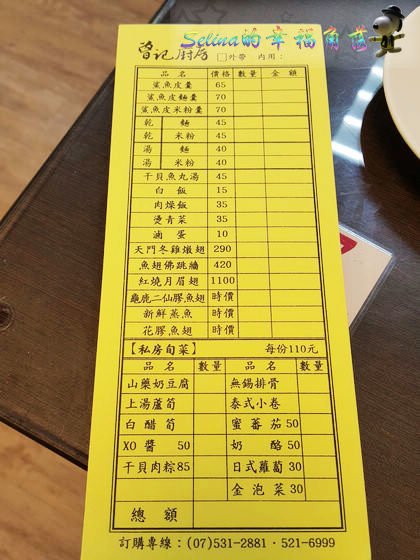 Selina的幸福角落
曾記廚房 □外帶 內用：
品名 價格 數量 金額
鯊魚皮羹 65
鯊魚皮麵羹 70
鯊魚皮米粉羹 70
乾 麵 45
乾 米粉 45
湯 麵 40
湯 米粉 40
干貝魚丸湯 45
白飯 15
肉燥飯 35
燙青菜 35
滷蛋 10
天門冬雞燉翅 290
魚翅佛跳牆 420
紅燒月眉翅 1100
龜鹿二仙膠魚翅 時價
新鮮蒸魚 時價
花膠魚翅 時價
【私房旬菜】 每份110元
品名 數量 品名 數量
山藥奶豆腐 無錫排骨
上湯蘆筍 泰式小卷
白醋筍 蜜蕃茄50
XO醬 50 奶酪 50
干貝肉粽85 日式蘿蔔30
金泡菜30
總額
訂購專線：(07)531-2881．521-6999